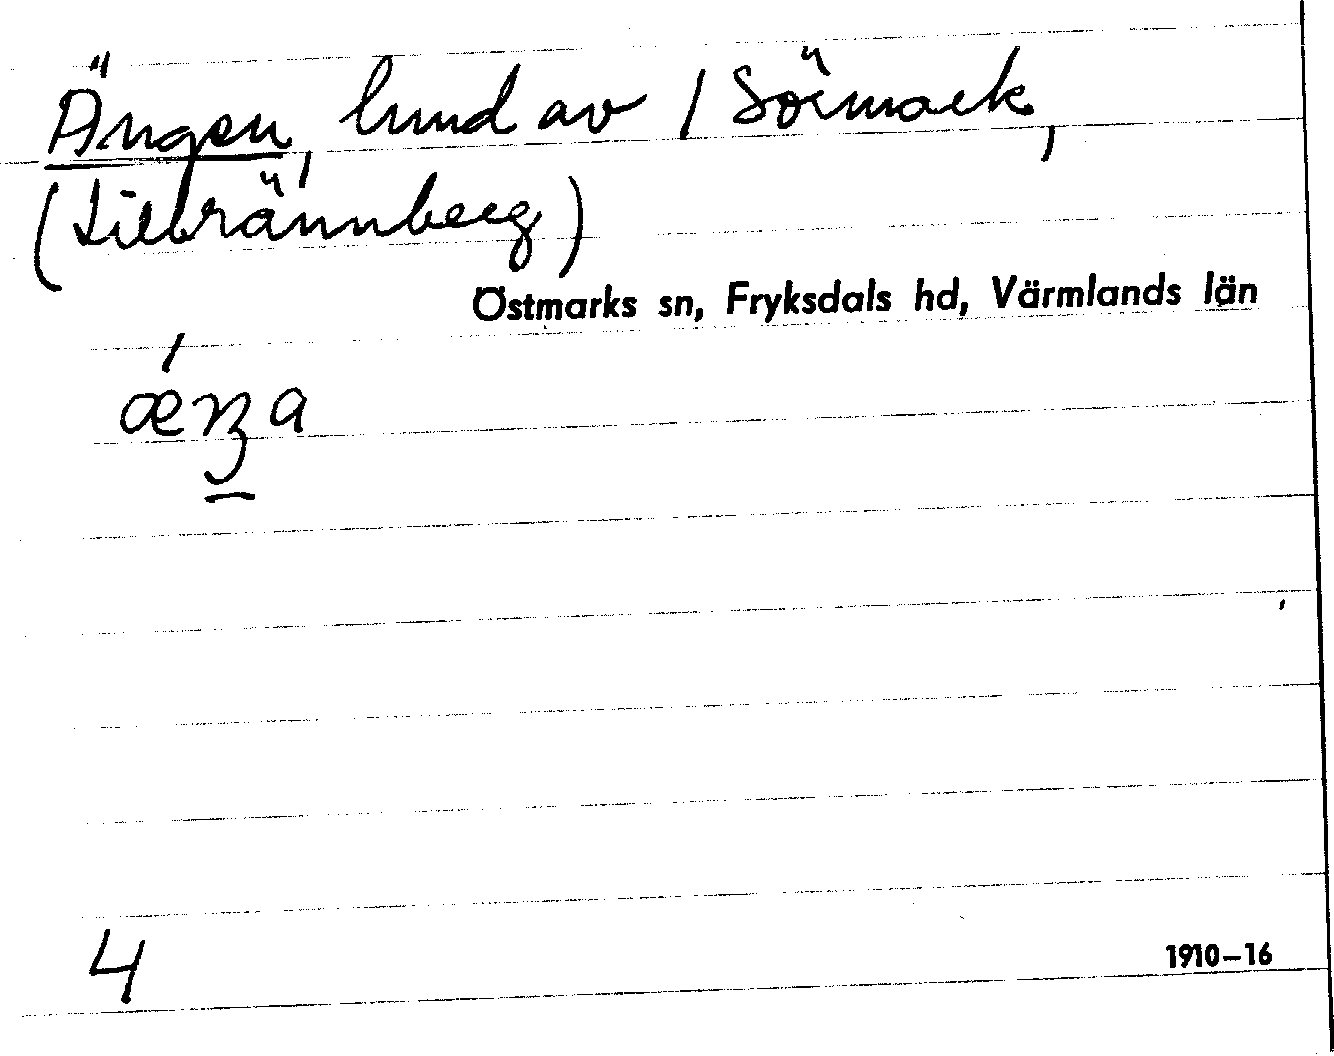 Ängen, lund av 1 Sörmark,
(Lillbrännberg)
Östmarks sn, Fryksdals hd, Värmlands län
4
1910–16